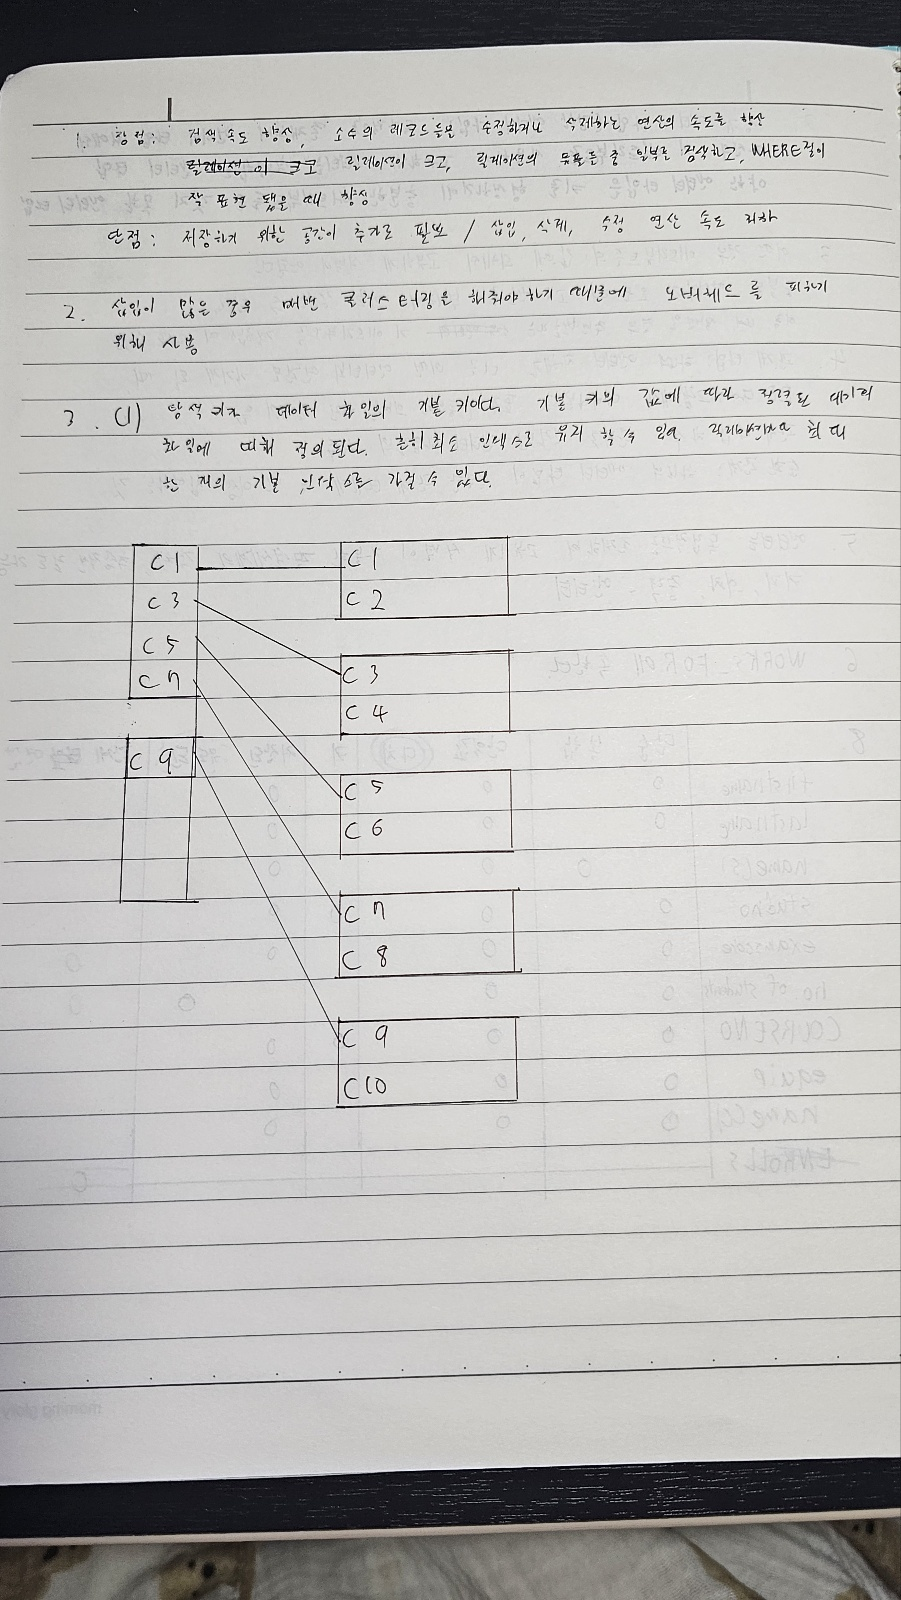 1. 장점: 검색 속도 향상, 소수의 레코드들을 수정하거나 삭제하는 연산의 속도를 향상
릴레이션이 크고 릴레이션이 크고, 릴레이션의 튜플들 중 일부를 검색하고, WHERE절이
잘 표현 됐을 때 향상
단점: 저장하기 위한 공간이 추가로 필요 / 삽입, 삭제, 수정 연산 속도 저하
2. 삽입이 많은 경우 매번 클러스터링을 해줘야하기 때문에 오버헤드를 피하기
위해 사용
3. (1) 탐색 키가 데이터 화일의 기본 키이다. 기본 키의 값에 따라 정렬된 데이터
화일에 대해 정의된다. 흔히 희소 인덱스로 유지 할 수 있다. 릴레이션마다 최대
한 개의 기본 인덱스를 가질 수 있다.
C1 C1
C3 C2
C5 C3
C7 C4
C9 C5
C6
C7
C8
C9
C10